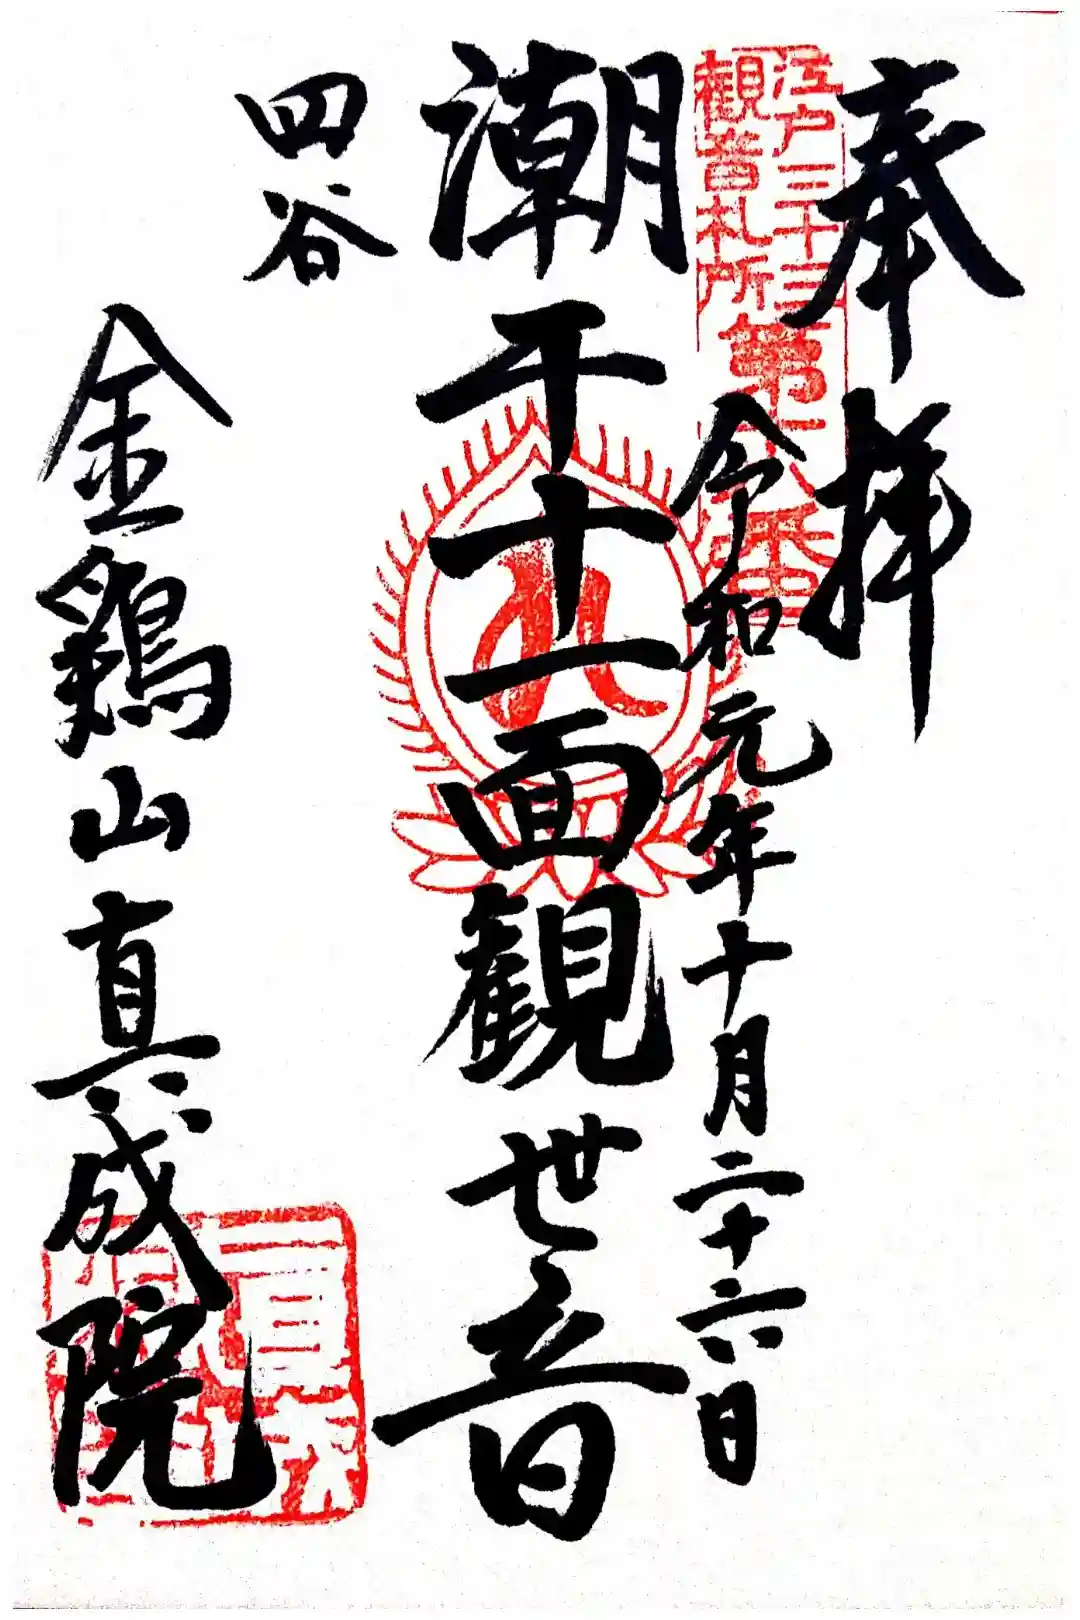 奉拝
江戸三十三
観音札所
第十八番
令和元年十月二十六日
潮干十一面観世音
四谷
金鶏山真成院